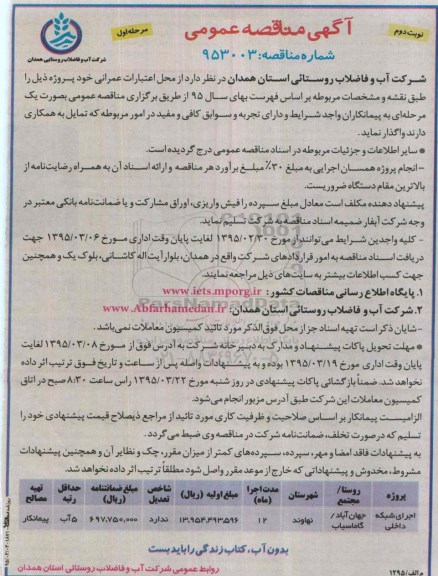 آگهی مناقصه عمومی
نوبت دوم
مرحله اول
شماره مناقصه: ۹۵۳۰۰۳
شرکت آب و فاضلاب روستایی همدان
شرکت آب و فاضلاب روستائی استان همدان در نظر دارد از محل اعتبارات عمرانی خود پروژه ذیل را
طبق نقشه و مشخصات مربوطه بر اساس فهرست بهای سال ۹۵ از طریق برگزاری مناقصه عمومی بصورت یک
مرحله‌ای به پیمانکاران واجد شرایط و دارای تجربه و سوابق کافی و مفید در امور مربوطه که تمایل به همکاری
دارند واگذار نماید.
* سایر اطلاعات و جزئیات مربوطه در اسناد مناقصه عمومی درج گردیده است.
- انجام پروژه همسان اجرایی به مبلغ ۳۰٪ مبلغ برآورد هر مناقصه و ارائه اسناد آن به همراه رضایت‌نامه از
بالاترین مقام دستگاه ضروریست.
پیشنهاد دهنده مکلف است معادل مبلغ سپرده را فیش واریزی، اوراق مشارکت و یا ضمانت‌نامه بانکی معتبر در
وجه شرکت آبفار ضمیمه اسناد مناقصه به شرکت تسلیم نماید.
- کلیه واجدین شرایط می‌توانند از مورخ ۱۳۹۵/۰۲/۳۰ لغایت پایان وقت اداری مورخ ۱۳۹۵/۰۳/۰۶ جهت
دریافت اسناد مناقصه به امور قراردادهای شرکت واقع در همدان، بلوار آیت‌اله کاشانی، بلوک یک و همچنین
جهت کسب اطلاعات بیشتر به سایت‌های ذیل مراجعه نمایند.
۱. پایگاه اطلاع رسانی مناقصات کشور: www.iets.mporg.ir
۲. شرکت آب و فاضلاب روستائی استان همدان: www.Abfarhamedan.ir
- شایان ذکر است تهیه اسناد جز از محل فوق‌الذکر مورد تائید کمیسیون معاملات نمی‌باشد.
* مهلت تحویل پاکات پیشنهاد و مدارک به دبیرخانه شرکت به آدرس فوق از مورخ ۱۳۹۵/۰۳/۰۸ لغایت
پایان وقت اداری مورخ ۱۳۹۵/۰۳/۱۹ بوده و به پیشنهادات واصله پس از ساعت و تاریخ فوق ترتیب اثر داده
نخواهد شد. ضمناً بازگشائی پاکات پیشنهادی در روز شنبه مورخ ۱۳۹۵/۰۳/۲۲ راس ساعت ۸:۳۰ صبح در اتاق
کمیسیون معاملات این شرکت طبق آدرس مزبور انجام می‌شود.
الزامیست پیمانکار بر اساس صلاحیت و ظرفیت کاری مورد تائید از مراجع ذیصلاح قیمت پیشنهادی خود را
تسلیم که درصورت تخلف، ضمانت‌نامه شرکت در مناقصه وی ضبط می‌گردد.
به پیشنهادات فاقد امضا و مهر، سپرده، سپرده‌های کمتر از میزان مقرر، چک و نظایر آن و همچنین پیشنهادات
مشروط، مخدوش و پیشنهاداتی که خارج از موعد مقرر واصل شود مطلقاً ترتیب اثر داده نخواهد شد.
پروژه | روستا/مجتمع | شهرستان | مدت اجرا (ماه) | مبلغ اولیه (ریال) | شاخص تعدیل | مبلغ ضمانتنامه (ریال) | حداقل رتبه | تهیه مصالح
اجرای شبکه داخلی | جهان‌آباد/گاماسیاب | نهاوند | ۱۲ | ۱۳،۹۵۴،۴۹۳،۵۹۶ | ندارد | ۶۹۷،۷۵۰،۰۰۰ | ۵ آب | پیمانکار
بدون آب، کتاب زندگی را باید بست
روابط عمومی شرکت آب و فاضلاب روستائی استان همدان
م الف/۱۲۹۵